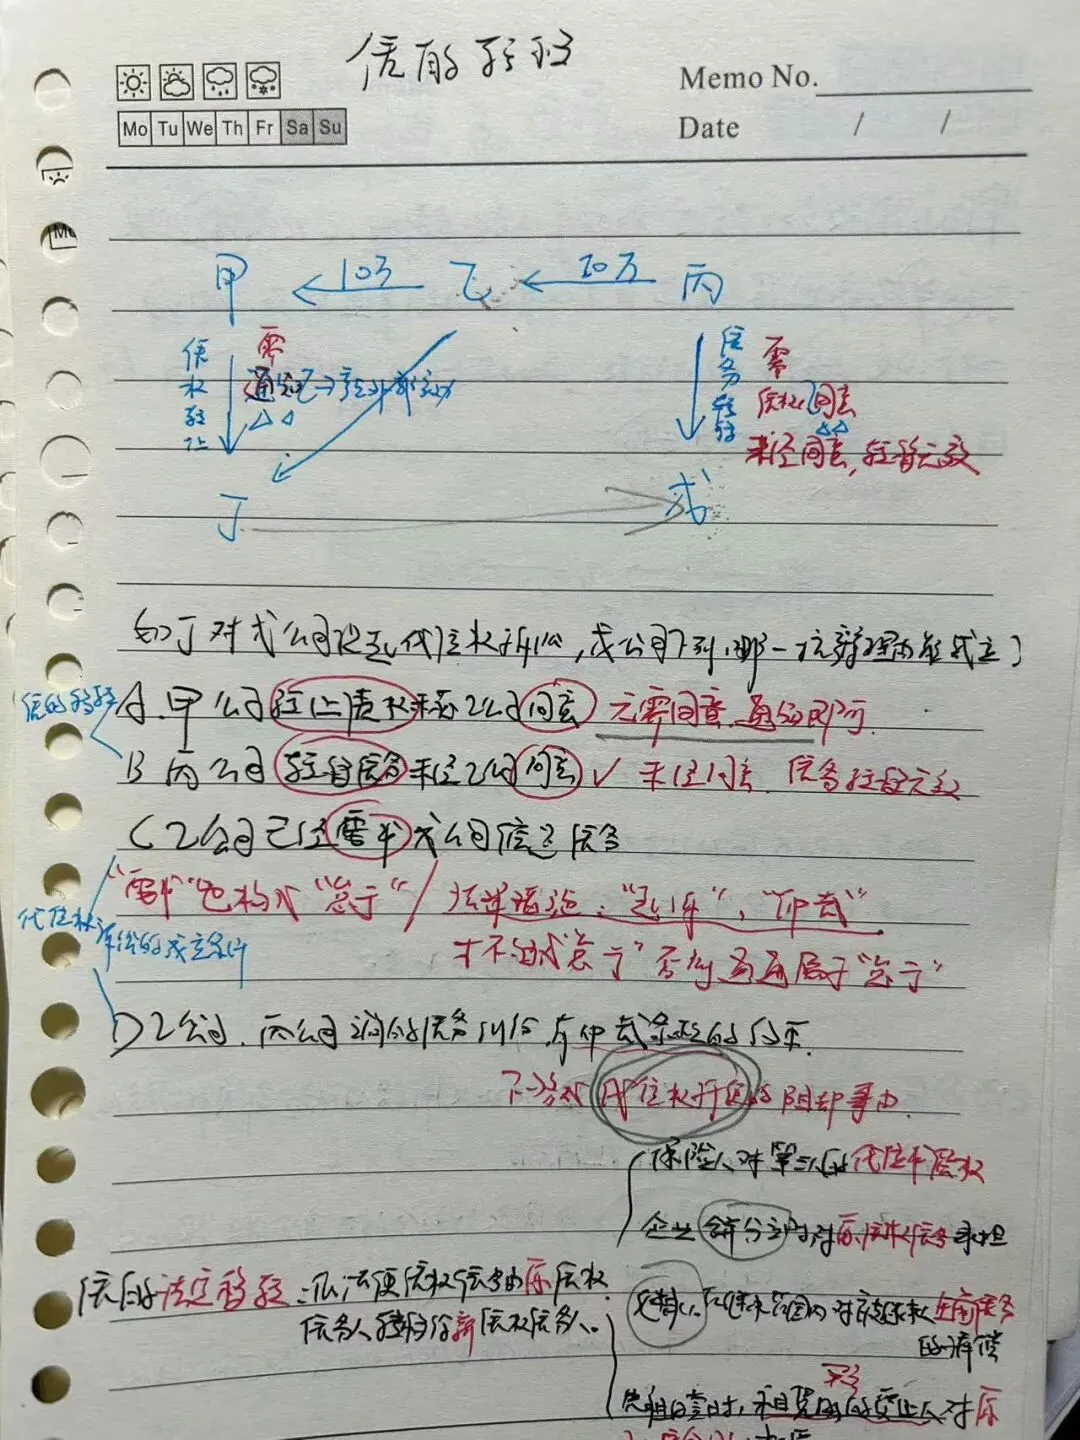 债的移转
Memo No.
Mo Tu We Th Fr Sa Su
Date / /
甲 ← 10万 乙 ← 20万 丙
债权转让
需
通知乙→
债务移转
需
债权人同意
未经同意,转移无效
丁 戊
如丁对戊公司提起代位权诉讼,戊公司下列哪一抗辩理由能成立
债的移转
A.甲公司转让债权未经乙公司同意 无需同意.通知即可.
B 丙公司转移债务未经乙公司同意 ✓ 未经同意.债务转移无效
C 乙公司已经要求戊公司偿还债务
“要求”也构成“怠于” 法律规定:“起诉”,“仲裁”
代位权诉讼的成立条件
才不构成“怠于”否则 属于“怠于”
D 乙公司.丙公司 债务纠纷.有仲裁条款的约定.
代位权行使的阻却事由.
保险人对第三人的代位求偿权
企业合并分立时对原债权债务承担
债的法定移转:依法使债权债务由原债权
债务人转移给新债权债务人.
继承人在继承范围内对被继承人生前债务
的清偿